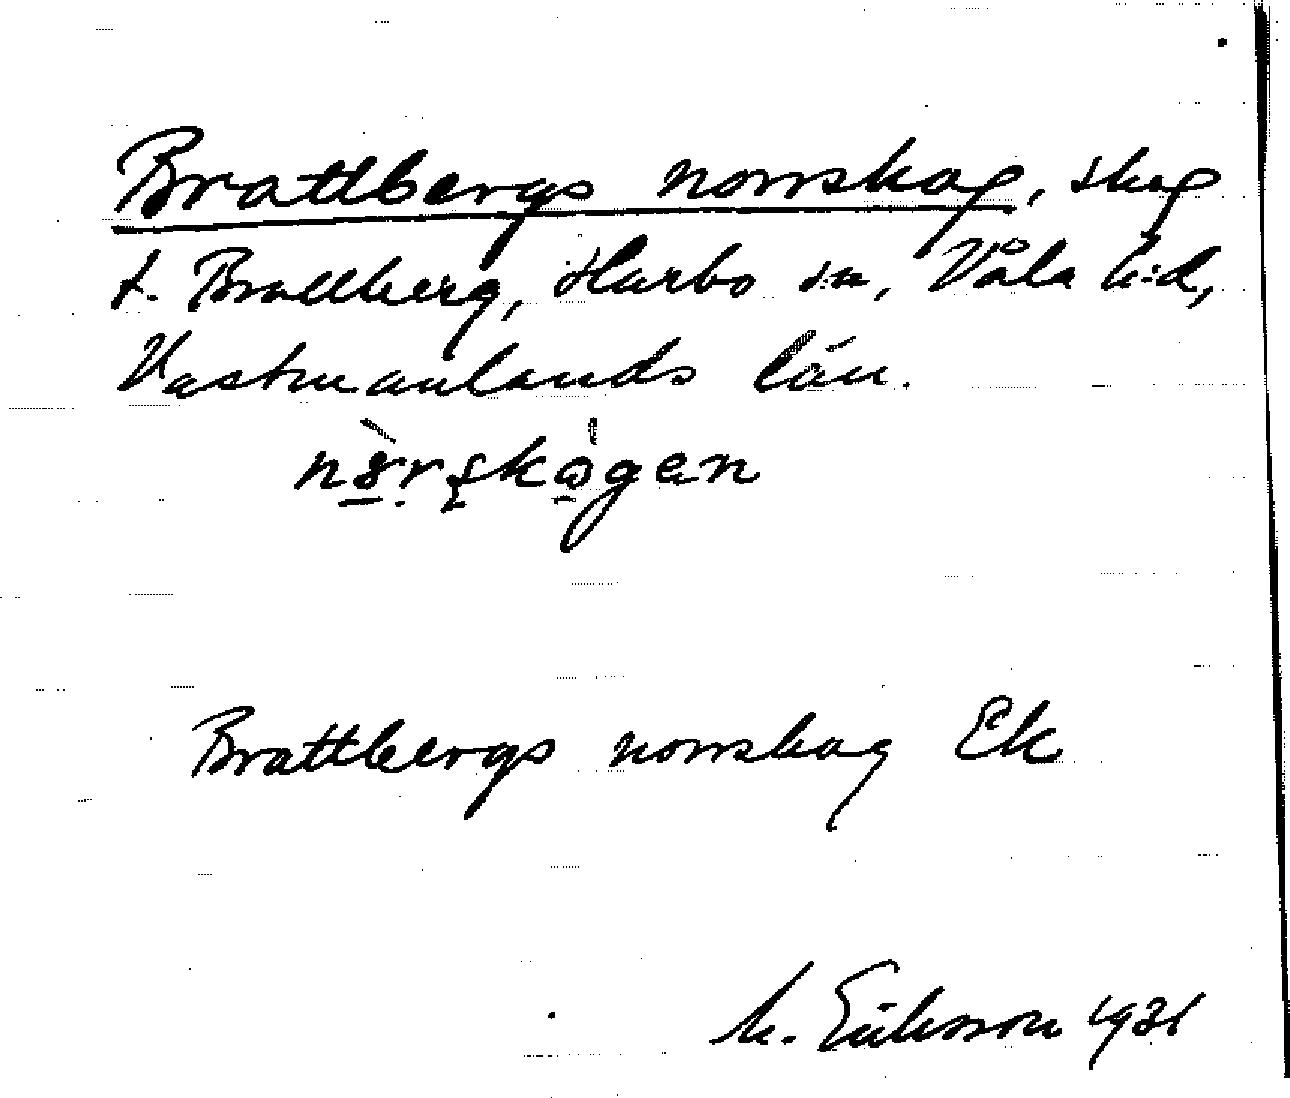 Brattbergs norrskog, skog
t. Brattberg, Harbo sn, Våla h:d,
Västmanlands län.
Brattbergs norrskog Ek
M. Eriksson 1931